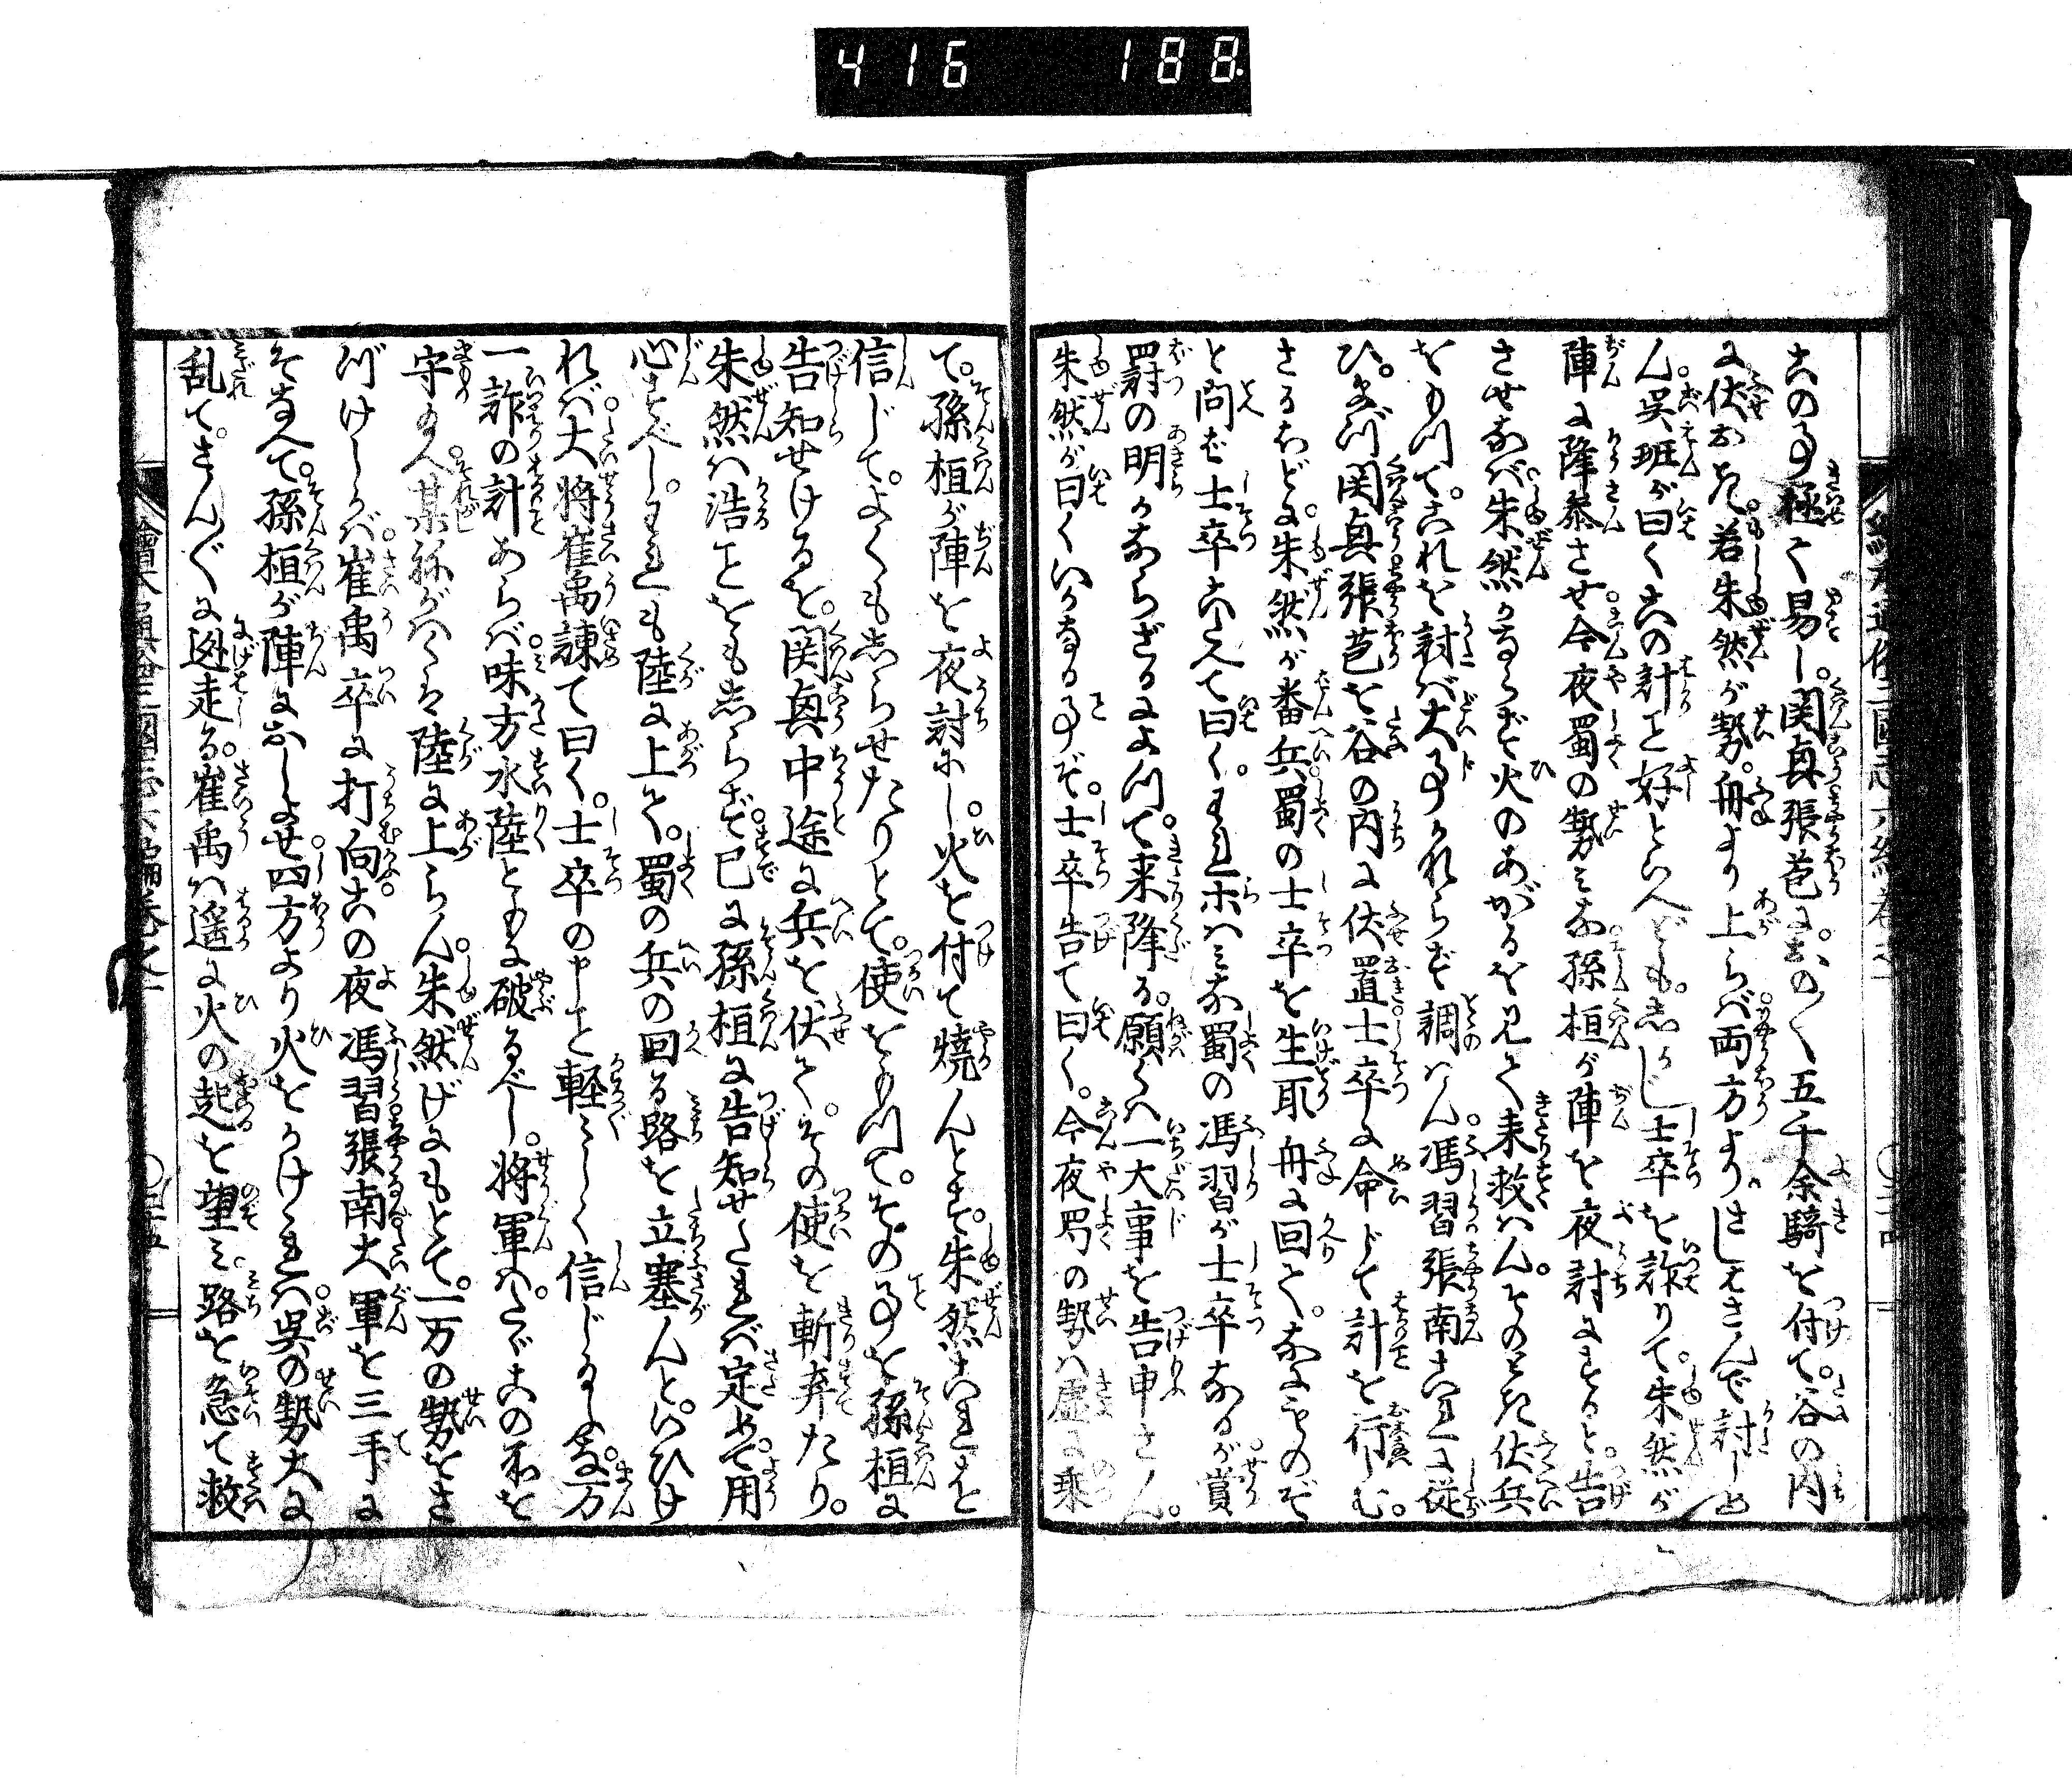 416 188
この事極て易し。関興張苞におの〳〵五千余騎を付て。谷の内
に伏おき。若朱然が勢。舟より上らば両方よりさしはさんで討しめ
ん。呉班が曰くこの計こと好といへども。しかじ士卒を詐りて。朱然が
陣に降参させ今夜蜀の勢みな孫桓が陣を夜討にすると告
させなば朱然かならず火のあがるを見て来救はん。そのとき伏兵
をもつて。これを討ば大事かならず調はん。馮習張南これに従
ひ。まづ関興張苞を谷の内に伏置士卒に命じて計を行しむ。
さるほどに朱然が番兵蜀の士卒を生取舟に回て。なにものぞ
と問ば士卒こたへて曰く。われホはみな蜀の馮習が士卒なるが。賞
罰の明かならざるによつて。来降る。願くは一大事を告申さん。
朱然が曰くいかなる事ぞ。士卒告て曰く。今夜蜀の勢は虚に乗
て。孫桓が陣を夜討にし。火を付て焼んとす。朱然これを
信じて。よくもしらせたりとて。使をもつて。その事を孫桓に
告知せけるを。関興中途に兵を伏て。その使を斬弃たり。
朱然は浩ことをもしらず。已に孫桓に告知せたれば定めて用
心すべし。われも陸に上て。蜀の兵の回る路を立塞んと。いひけ
れば。大将崔禹諫て曰く。士卒の申こと軽〳〵しく信じがたし。万
一詐の計あらば。味方水陸ともに破るべし。将軍は。たゞこの舟を
守玉へ。某緱がはくは陸に上らん。朱然げにもとて。一万の勢をさ
づけしかば。崔禹卒に打向。この夜馮習張南大軍を三手に
そなへて。孫桓が陣におしよせ四方より火をかけければ。呉の勢大に
乱て。さん〴〵に迯走る。崔禹は遥に火の起を望み。路を急て救